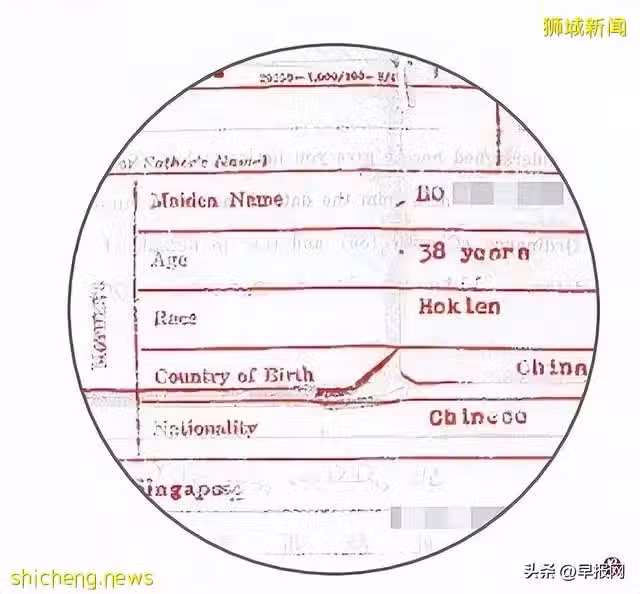 狮城新闻
or Father's Name)
Maiden Name
Age
38 years
Race
Hokien
Country of Birth
China
Nationality
Chinese
Singapore
shicheng.news
头条 @早报网